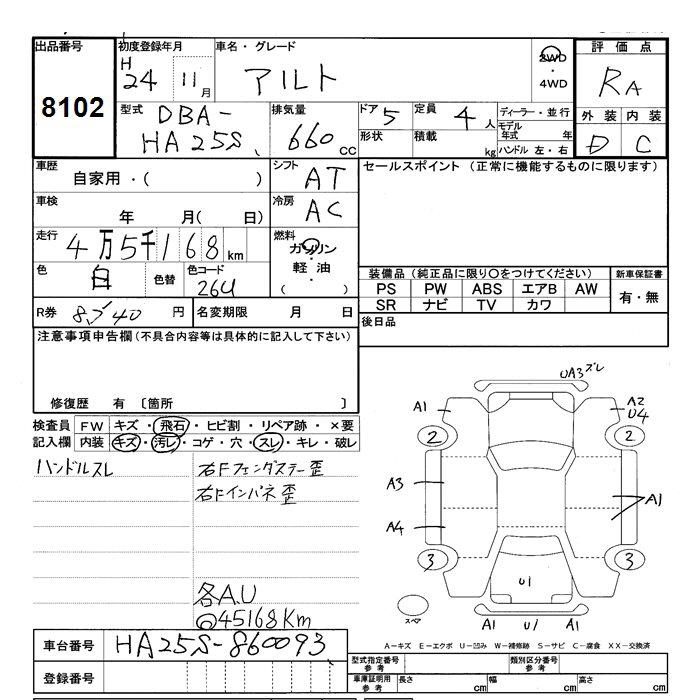 出品番号
8102
初度登録年月
H
24 11月
車名・グレード
アルト
2WD
・
4WD
評価点
RA
外装 内装
D C
型式
DBA-
HA25S
排気量
660 CC
ドア 5
形状
定員 4人
積載 kg
ディーラー・並行
モデル年式 年
ハンドル 左・右
車歴
自家用・( )
車検
年 月( 日)
走行
4万5千168km
色
白
色替
色コード
26U
シフト
AT
冷房
AC
燃料
ガソリン
・
軽油
( )
セールスポイント (正常に機能するものに限ります)
装備品(純正品に限り○をつけてください)
PS PW ABS エアB AW
SR ナビ TV カワ
新車保証書
有・無
R券 円
名変期限 月 日
後日品
注意事項申告欄(不具合内容等は具体的に記入して下さい)
修復歴 有 〔箇所 〕
検査員 FW キズ・飛石・ヒビ割・リペア跡・×要
記入欄 内装 キズ・汚レ・コゲ・穴・スレ・キレ・破レ
ハンドルスレ
右Fフェンダステー歪
右Fインパネ歪
各A.U
45168Km
UA3ズレ
A1
A2
U4
2
2
A3
A1
A4
3
3
U1
スペア
A1 U1 A1
A-キズ E-エクボ U-凹み W-補修跡 S-サビ C-腐食 XX-交換済
車台番号
HA25S-860093
登録番号
型式指定番号
参考
類別区分番号
参考
車庫証明用
参考
長さ cm
幅 cm
高さ cm